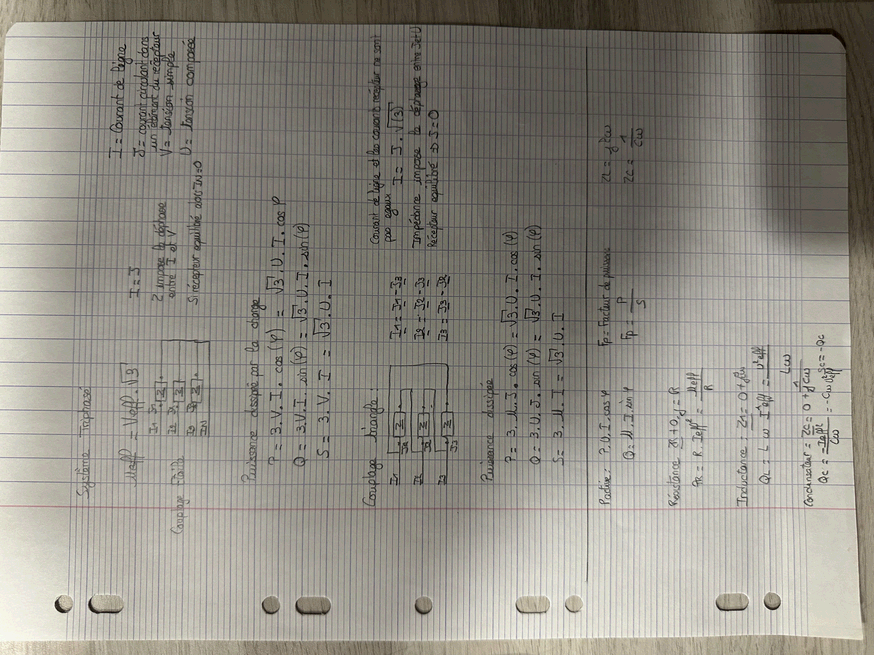 Système Triphasé
Ueff = Veff . √3
I = J
I = Courant de ligne
J = courant circulant dans
un élément du récepteur
V = tension simple
U = tension composée
Couplage Étoile
I1 J1 Z
I2 J2 Z
I3 J3 Z
IN
Z impose le déphasage
entre I et V
Si récepteur équilibré alors IN=0
Puissance dissipée par la charge
P = 3.V.I. cos(φ) = √3.U.I.cos φ
Q = 3.V.I. sin(φ) = √3.U.I.sin(φ)
S = 3.V.I = √3.U.I
Couplage triangle :
I1 J1 Z
I2 J2 Z
I3 J3 Z
I1 = J1 - J3
I2 = J2 - J1
I3 = J3 - J2
Courant de ligne et les courant récepteur ne sont
pas égaux I = J.√(3)
Impédance impose le déphasage entre J et U
Récepteur équilibré =>
Puissance dissipée
P = 3.U.J.cos(φ) = √3.U.I.cos(φ)
Q = 3.U.J.sin(φ) = √3.U.I.sin(φ)
S = 3.U.I = √3.U.I
Pactive : P.U.I.cos φ
Q = U.I.sin φ
Fp = Facteur de puissance
Fp = P/S
ZL = jLω
Zc = 1/cω
Résistance ZR + 0.j = R
PR = R Ieff² = Ueff/R
Inductance ZL = 0 +
QL = L ω I²eff = U²eff/Lω
Condensateur = Zc = 0 +
Qc = -Ieff²/Cω = -Cω U²eff Sc = -Qc